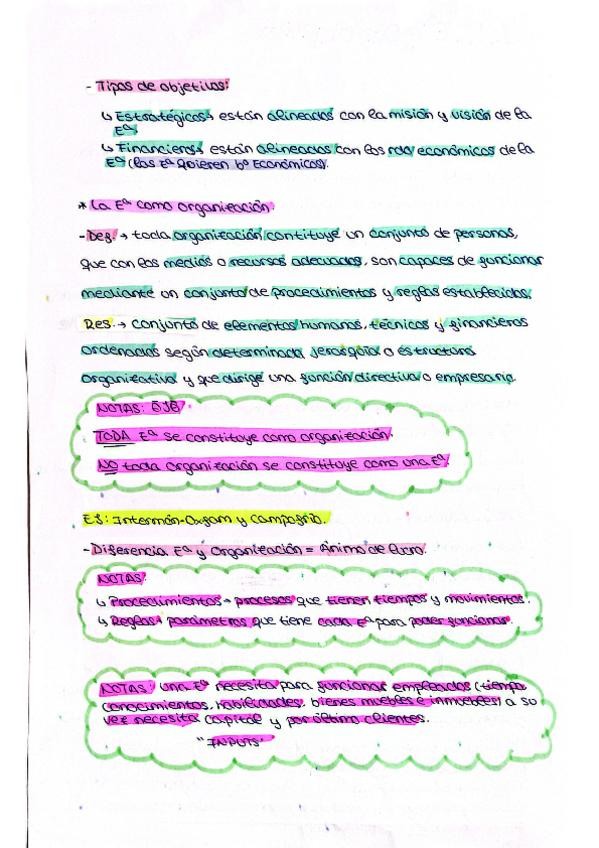 - Tipos de objetivos:
↳ Estratégicos → están alineados con la misión y visión de la
Eª.
↳ Financieros → están alineados con los rdo económicos de la
Eª (las Eª quieren bº Económicos).
* La Eª como organización.
- Def. → toda organización contituye un conjunto de personas,
que con los medios o recursos adecuados, son capaces de funcionar
mediante un conjunto de procedimientos y reglas establecidas.
Res. → conjunto de elementos humanos, técnicos y financieros
ordenados según determinada jerarquía o estructura
organizativa y que dirige una función directiva o empresaria.
NOTAS: OJO
TODA Eª se constituye como organización.
NO toda organización se constituye como una Eª.
EJ: Intermón-Oxfam y Campofrío.
- Diferencia Eª y Organización = Ánimo de lucro.
NOTAS:
↳ Procedimientos → procesos que tienen tiempos y movimientos.
↳ Reglas → parámetros que tiene cada Eª para poder funcionar.
NOTAS: una Eª necesita para funcionar empleados (tiempo
conocimientos, habilidades, bienes muebles e inmuebles) a su
vez necesita capital y por último clientes.
"INPUTS"